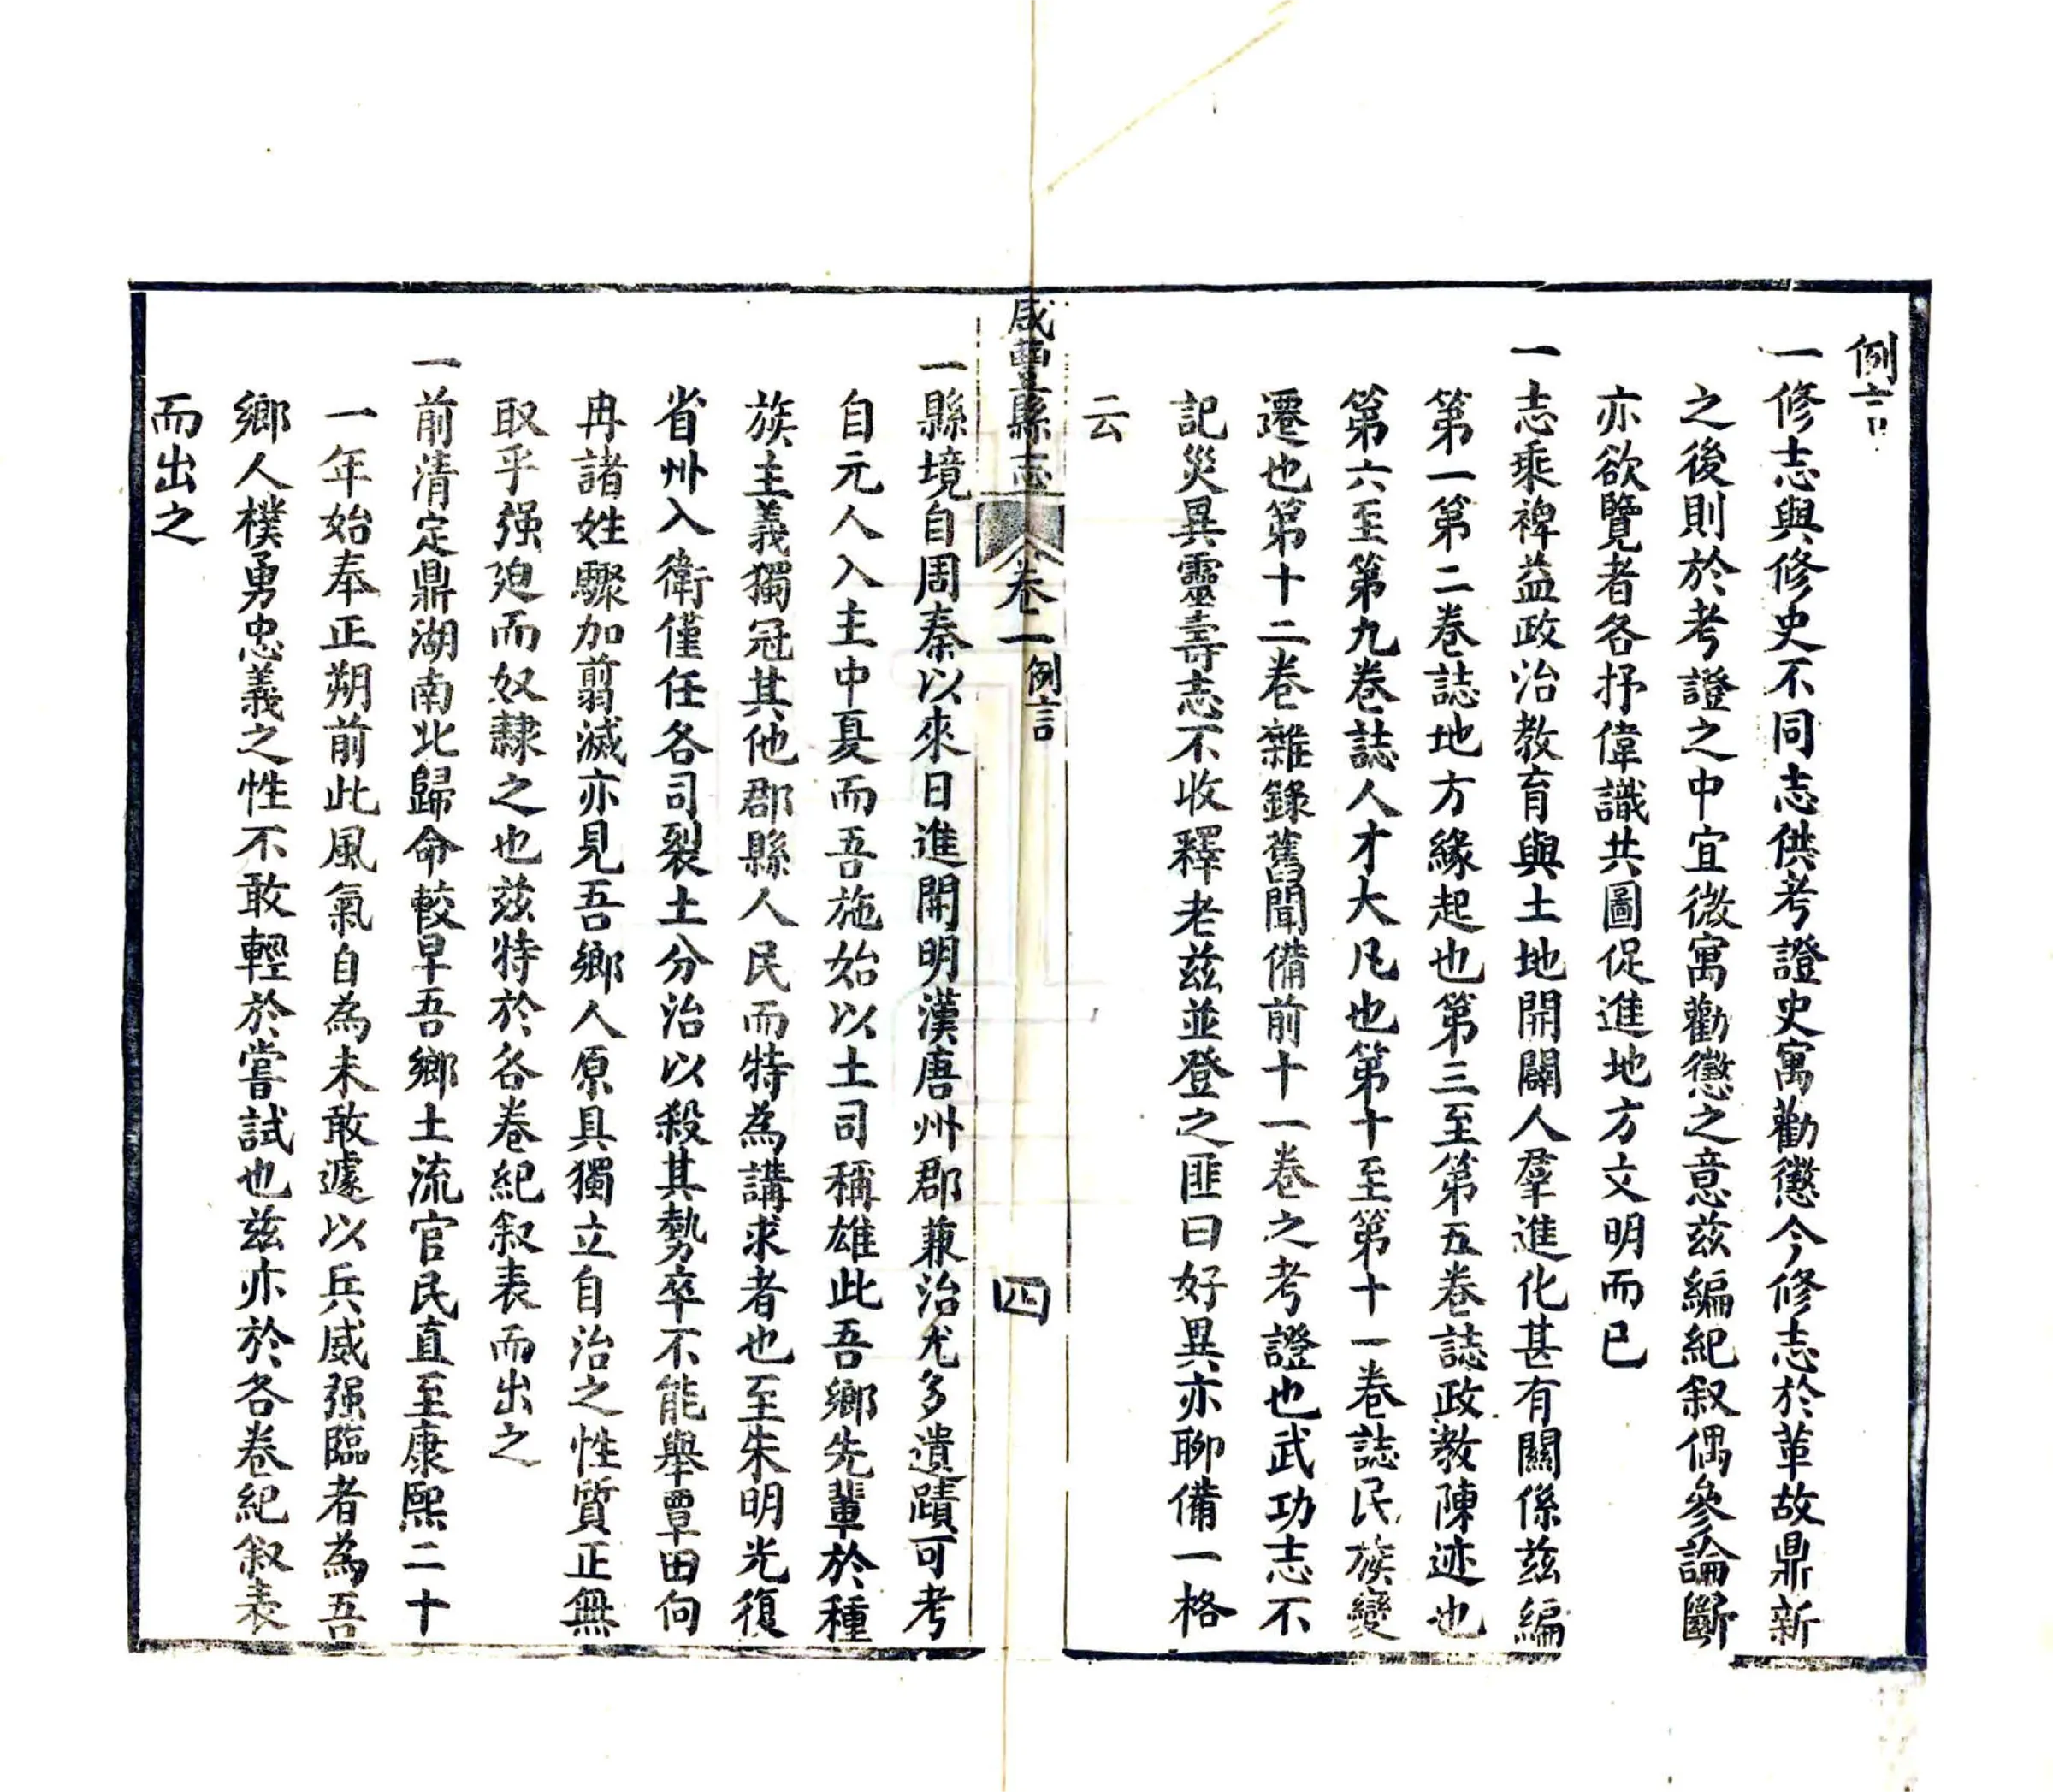 例言
一修志與修史不同志供考證史寓勸懲今修志於革故鼎新
之後則於考證之中宜微寓勸懲之意兹編紀叙偶參論斷
亦欲覽者各抒偉識共圖促進地方文明而已
一志乘裨益政治教育與土地開闢人羣進化甚有關係兹編
第一第二卷誌地方緣起也第三至第五卷誌政教陳迹也
第六至第九卷誌人才大凡也第十至第十一卷誌民族變
遷也第十二卷雜錄舊聞備前十一卷之考證也武功志不
記災異靈壽志不收釋老兹並登之匪曰好異亦聊備一格
云
咸豐縣志
卷一
例言
四
一縣境自周秦以來日進開明漢唐州郡兼治尤多遺蹟可考
自元人入主中夏而吾施始以土司稱雄此吾鄉先輩於種
族主義獨冠其他郡縣人民而特為講求者也至朱明光復
省州入衛僅任各司裂土分治以殺其勢卒不能舉覃田向
冉諸姓驟加翦滅亦見吾鄉人原具獨立自治之性質正無
取乎强迫而奴隸之也兹特於各卷紀叙表而出之
一前清定鼎湖南北歸命較早吾鄉土流官民直至康熙二十
一年始奉正朔前此風氣自為未敢遽以兵威强臨者為吾
鄉人樸勇忠義之性不敢輕於嘗試也兹亦於各卷紀叙表
而出之